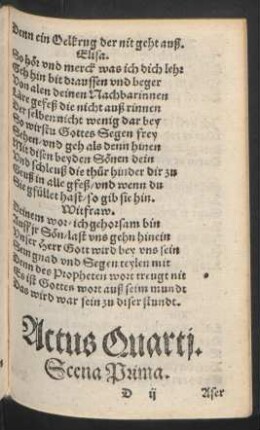 Denn ein Oelkrug der nit geht auß.
Elisa.
So hör vnd merck was ich dich lehr
Geh hin bit draussen vnd beger
Von alen deinen Nachbarinnen
Läre gefeß die nicht auß rinnen
Der selben nicht wenig dar bey
So wirstu Gottes Segen frey
Sehen/vnd geh als denn hinen
Mit disen beyden Sönen dein
Vnd schleuß die thür hinder dir zu
Geuß in alle gfeß/vnd wenn du
Sie gfüllet hast/so gib sie hin.
Witfraw.
Deinem wor/ich gehorsam bin
Auff jr Sön/last vns gehn hinein
Vnser Herr Gott wird bey vns sein
Sein gnad vnd Segen teylen mit
Denn des Propheten wort treugt nit
Es ist Gottes wort auß seim mundt
Das wird war sein zu diser stundt.
Actus Quartj.
Scena Prima.
D ij Aser